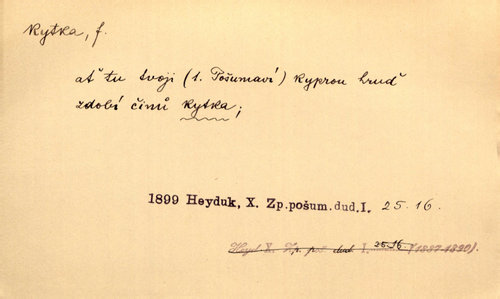 kytka, f.
ať tu tvoji (t. Pošumaví) kyprou hruď
zdobí činů kytka;
1899 Heyduk, X. Zp.pošum.dud.I. 25.16.
Heyd X. Zp. poš dud I. 25.16 (1887-1890).